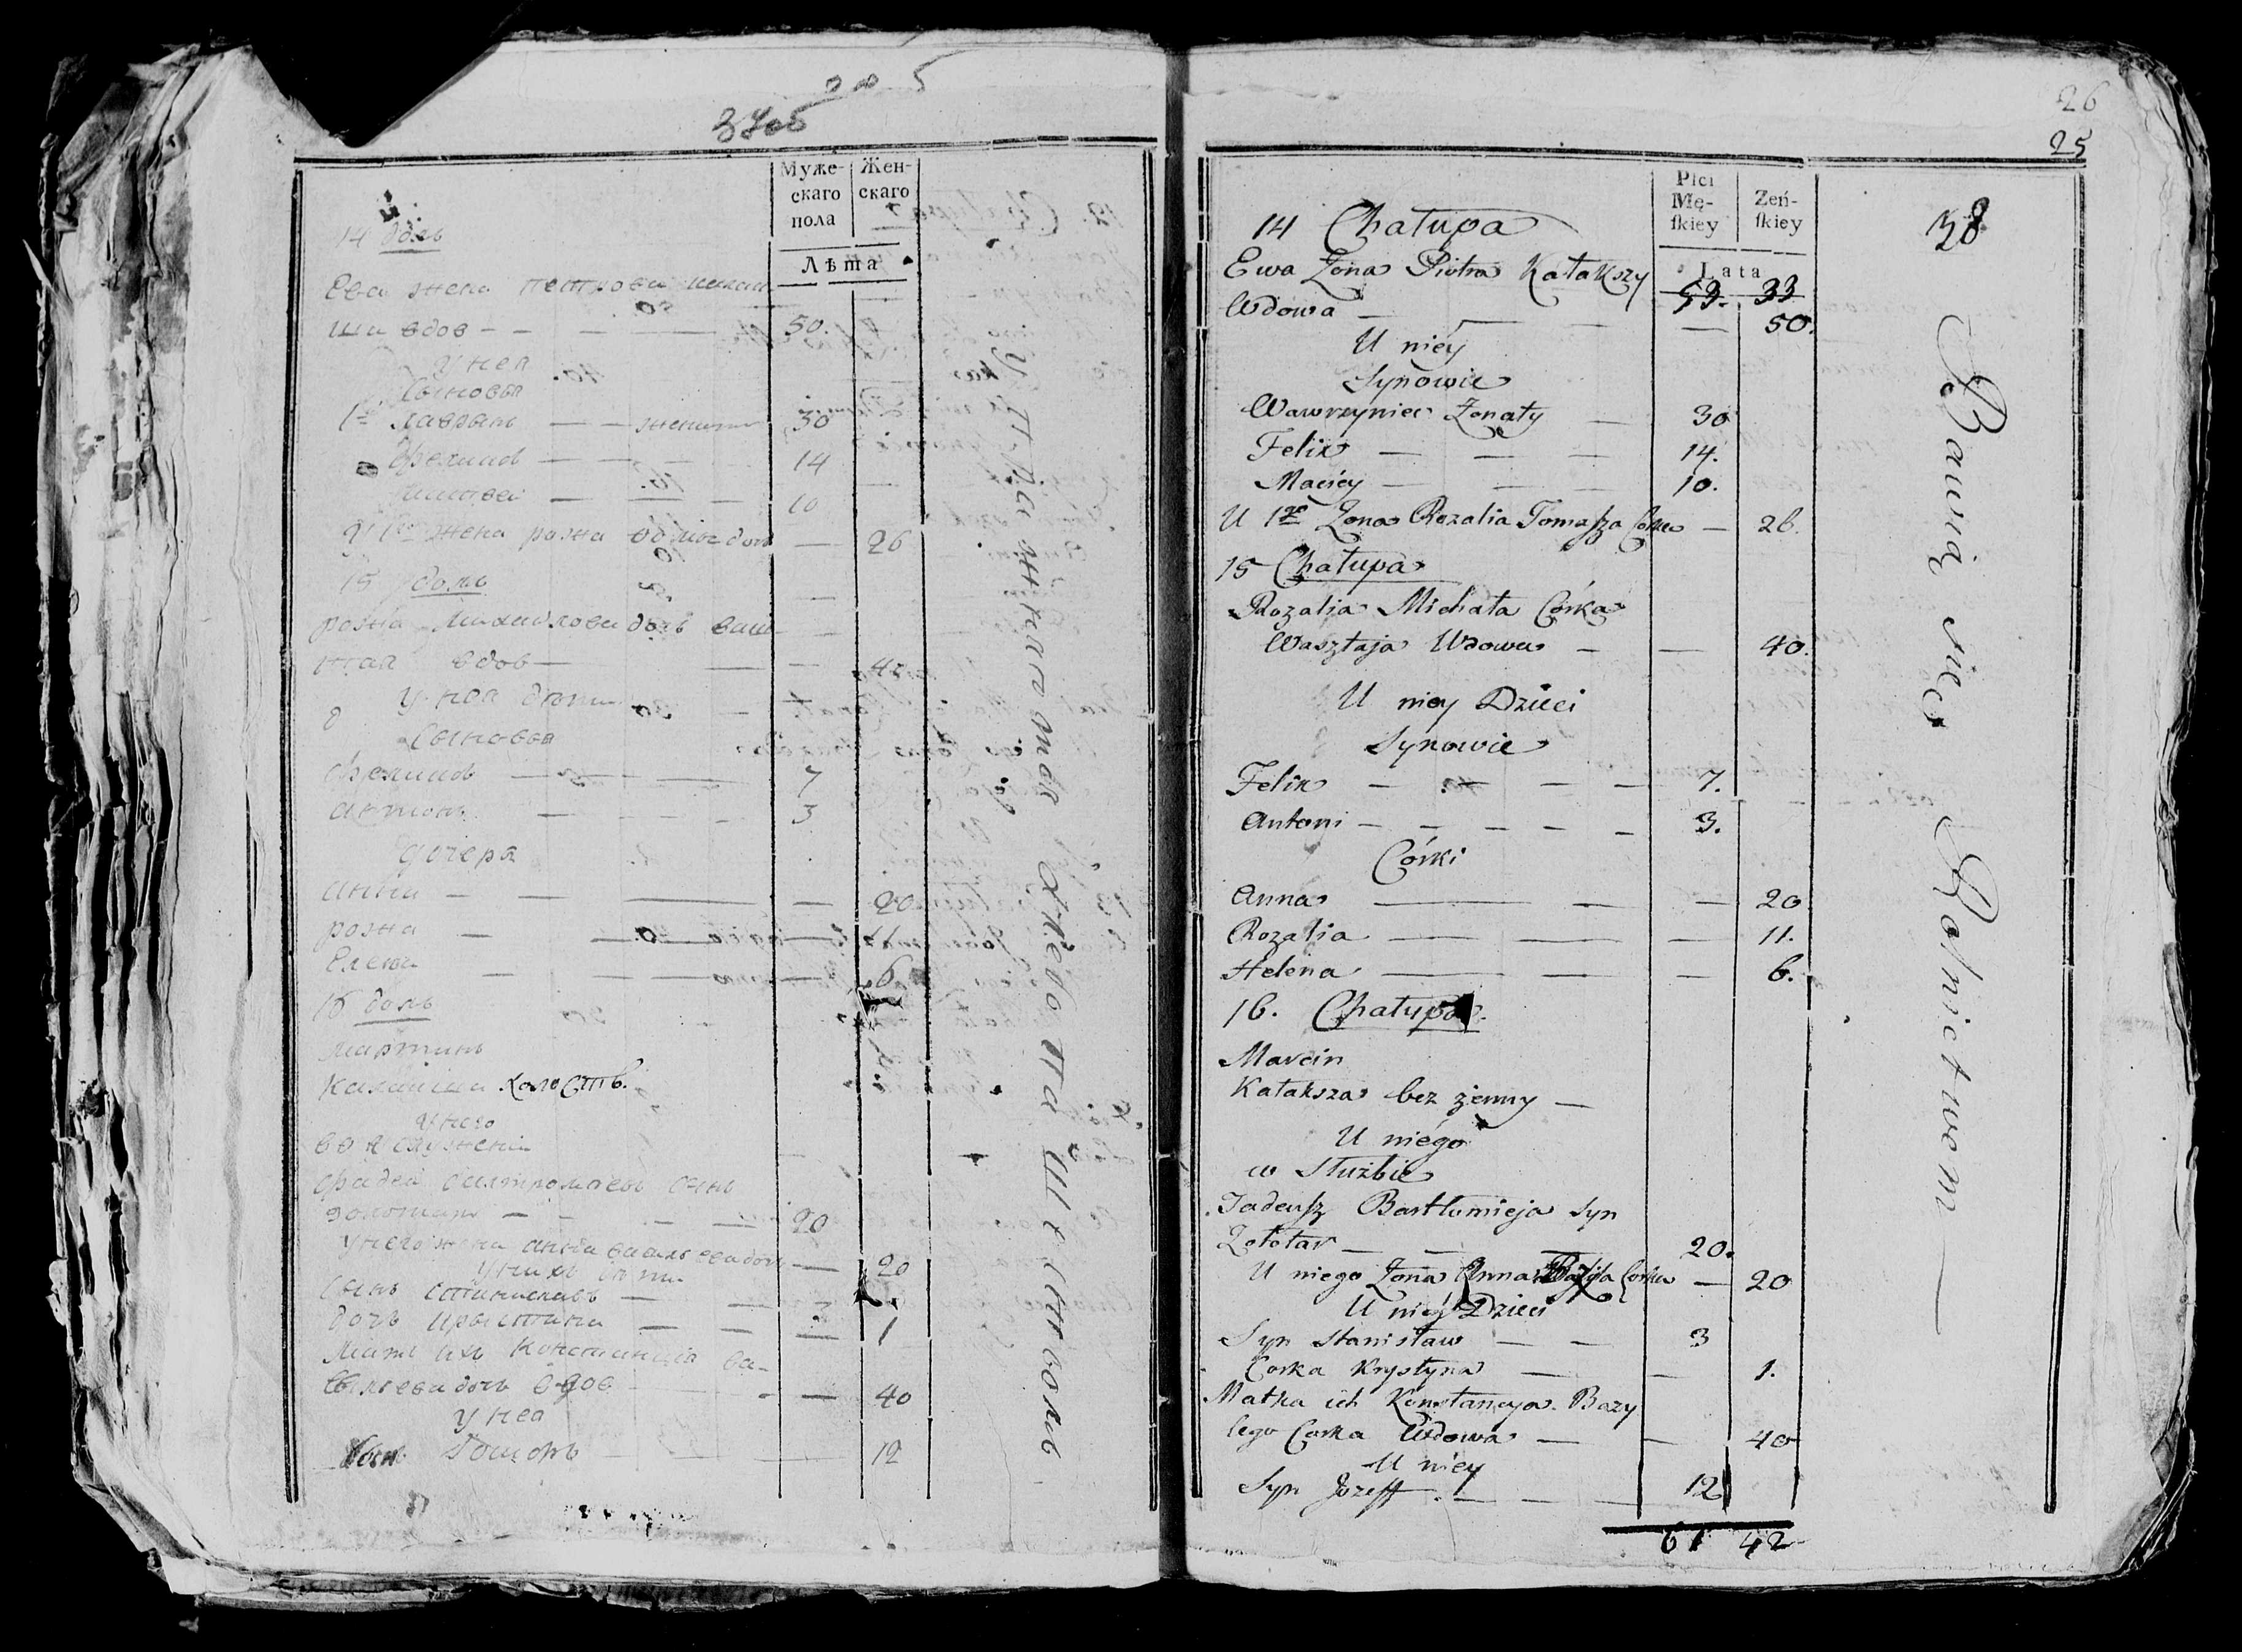 205
3406
Муже-
скаго
пола
Жен-
скаго
Лѣта
14 домъ
Ева жена петрова
ша вдов 50.
У нея
Сыновья
1е лаврынъ женит 30
Феликсъ 14
10
У 1го жена розка 26
15 домъ
розка Михаилова дочь ваш
тая вдов
У нея дети
Сыновья
Феликсъ 7
антонъ 3
дочери
анна 20
розка 11
Елена 6
16 домъ
мартинъ
калакша холоств.
У него
во услужении
фадей балтромеевъ сынъ
золотаръ 20
У него жена анна васильева дочь 20
У них дети
Сынъ станиславъ 3
дочь крыстина 1
Мать ихъ Констанция ва-
сильева дочь вдов 40
У нея
Сынъ 12
Упражняются хлебопашествомъ
26
25
Płci
Mę-
ſkiey
Żeń-
ſkiey
Lata
14 Chałupa
53. 33
Ewa Żona Piotra Kałakszy
Wdowa 50.
U niey
Synowie
Wawrzyniec Żonaty 30
Felix 14.
Maciey 10.
U 1go Żona Rozalia Tomaſza Corka 26.
15 Chałupa
Rozalia Michała Córka
Wasztaja Wdowa 40.
U niey Dzieci
Synowie
Felix 7.
Antoni 3.
Córki
Anna 20
Rozalia 11.
Helena 6.
16. Chałupa.
Marcin
Kałaksza bez żenny
U niego
w Służbie
Tadeuſz Bartłomieja Syn
Zołotar 20.
U niego Żona Anna Corka 20
U niey Dzieci
Syn Stanisław 3
Corka Krystyna 1.
Matka ich Konstancya Bazy
lego Corka Wdowa 40
U niey
Syn Jozeff 12
61 42
38
Bawią się Rolnictwem